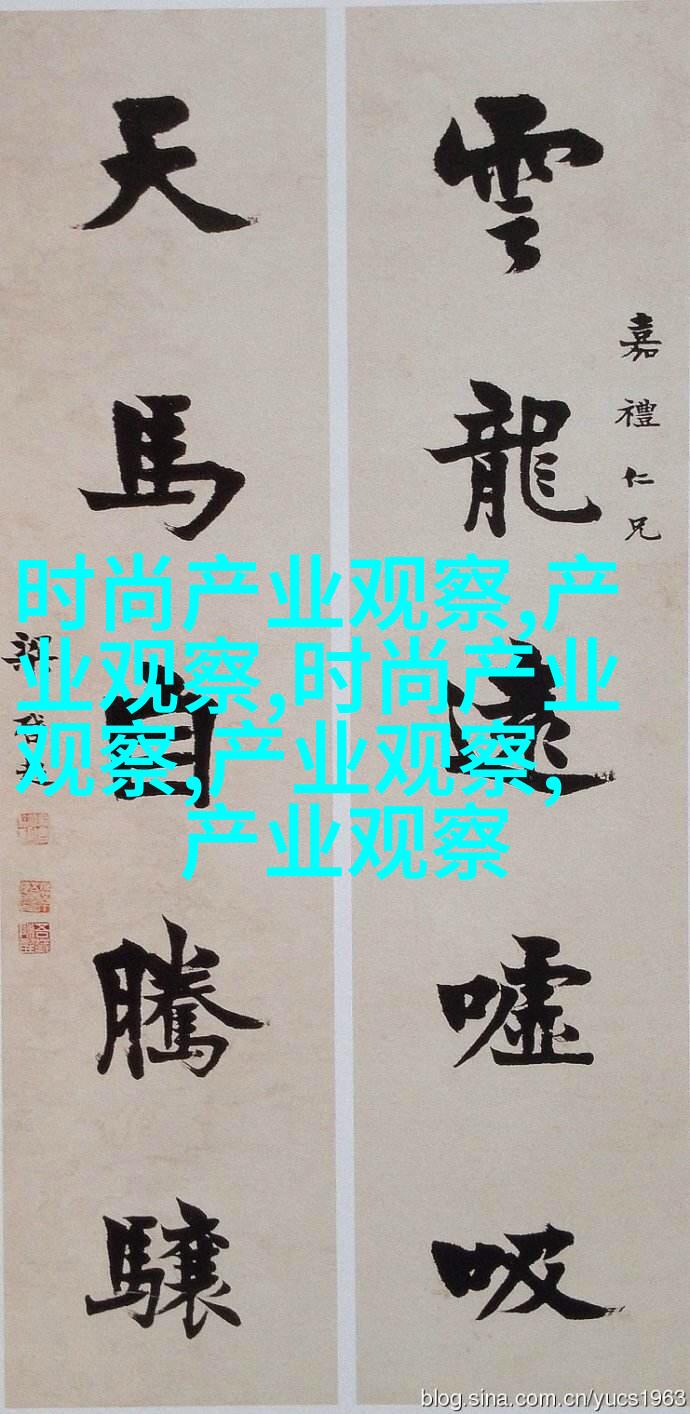 嘉禮仁兄
雲龍遠噓吸
天馬自騰驤
时尚产业观察,产
业观察,时尚产业
观察,产业观察,
产业观察
blog.sina.com.cn/yucs1963